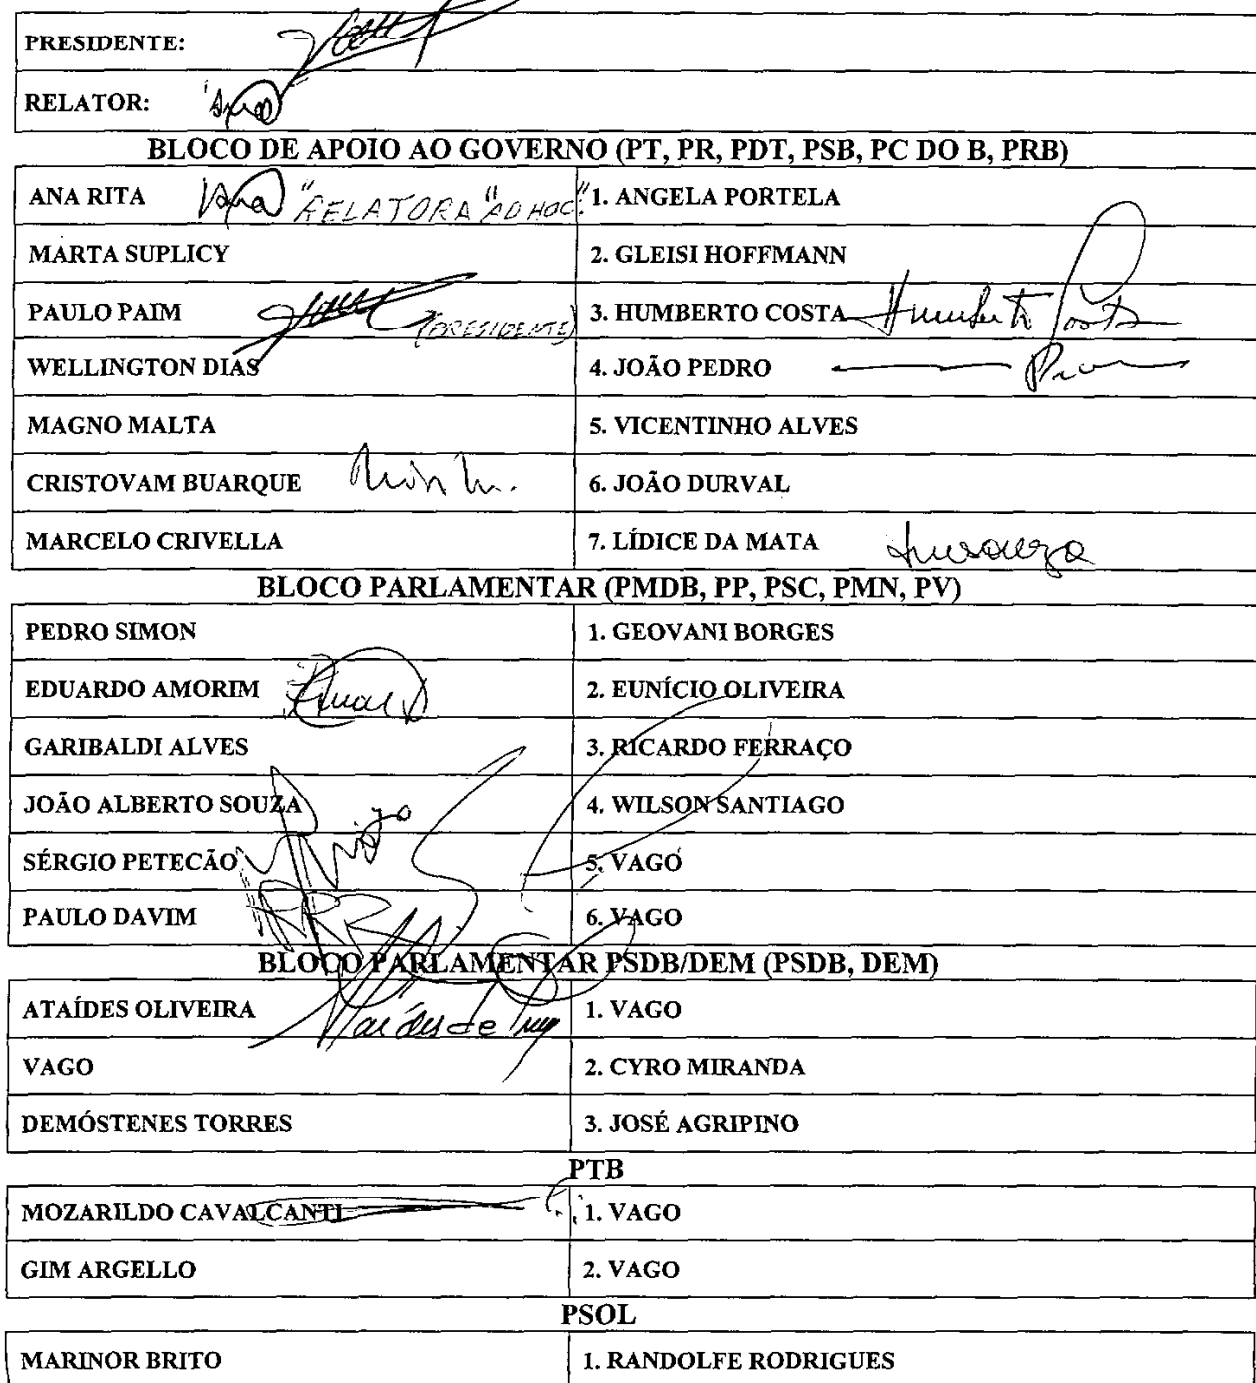 PRESIDENTE:
RELATOR:
BLOCO DE APOIO AO GOVERNO (PT, PR, PDT, PSB, PC DO B, PRB)
ANA RITA "RELATORA "AD HOC" 1. ANGELA PORTELA
MARTA SUPLICY 2. GLEISI HOFFMANN
PAULO PAIM (PRESIDENTE) 3. HUMBERTO COSTA Humberto Costa
WELLINGTON DIAS 4. JOÃO PEDRO
MAGNO MALTA 5. VICENTINHO ALVES
CRISTOVAM BUARQUE 6. JOÃO DURVAL
MARCELO CRIVELLA 7. LÍDICE DA MATA
BLOCO PARLAMENTAR (PMDB, PP, PSC, PMN, PV)
PEDRO SIMON 1. GEOVANI BORGES
EDUARDO AMORIM 2. EUNÍCIO OLIVEIRA
GARIBALDI ALVES 3. RICARDO FERRAÇO
JOÃO ALBERTO SOUZA 4. WILSON SANTIAGO
SÉRGIO PETECÃO 5. VAGO
PAULO DAVIM 6. VAGO
BLOCO PARLAMENTAR PSDB/DEM (PSDB, DEM)
ATAÍDES OLIVEIRA 1. VAGO
VAGO 2. CYRO MIRANDA
DEMÓSTENES TORRES 3. JOSÉ AGRIPINO
PTB
MOZARILDO CAVALCANTI 1. VAGO
GIM ARGELLO 2. VAGO
PSOL
MARINOR BRITO 1. RANDOLFE RODRIGUES